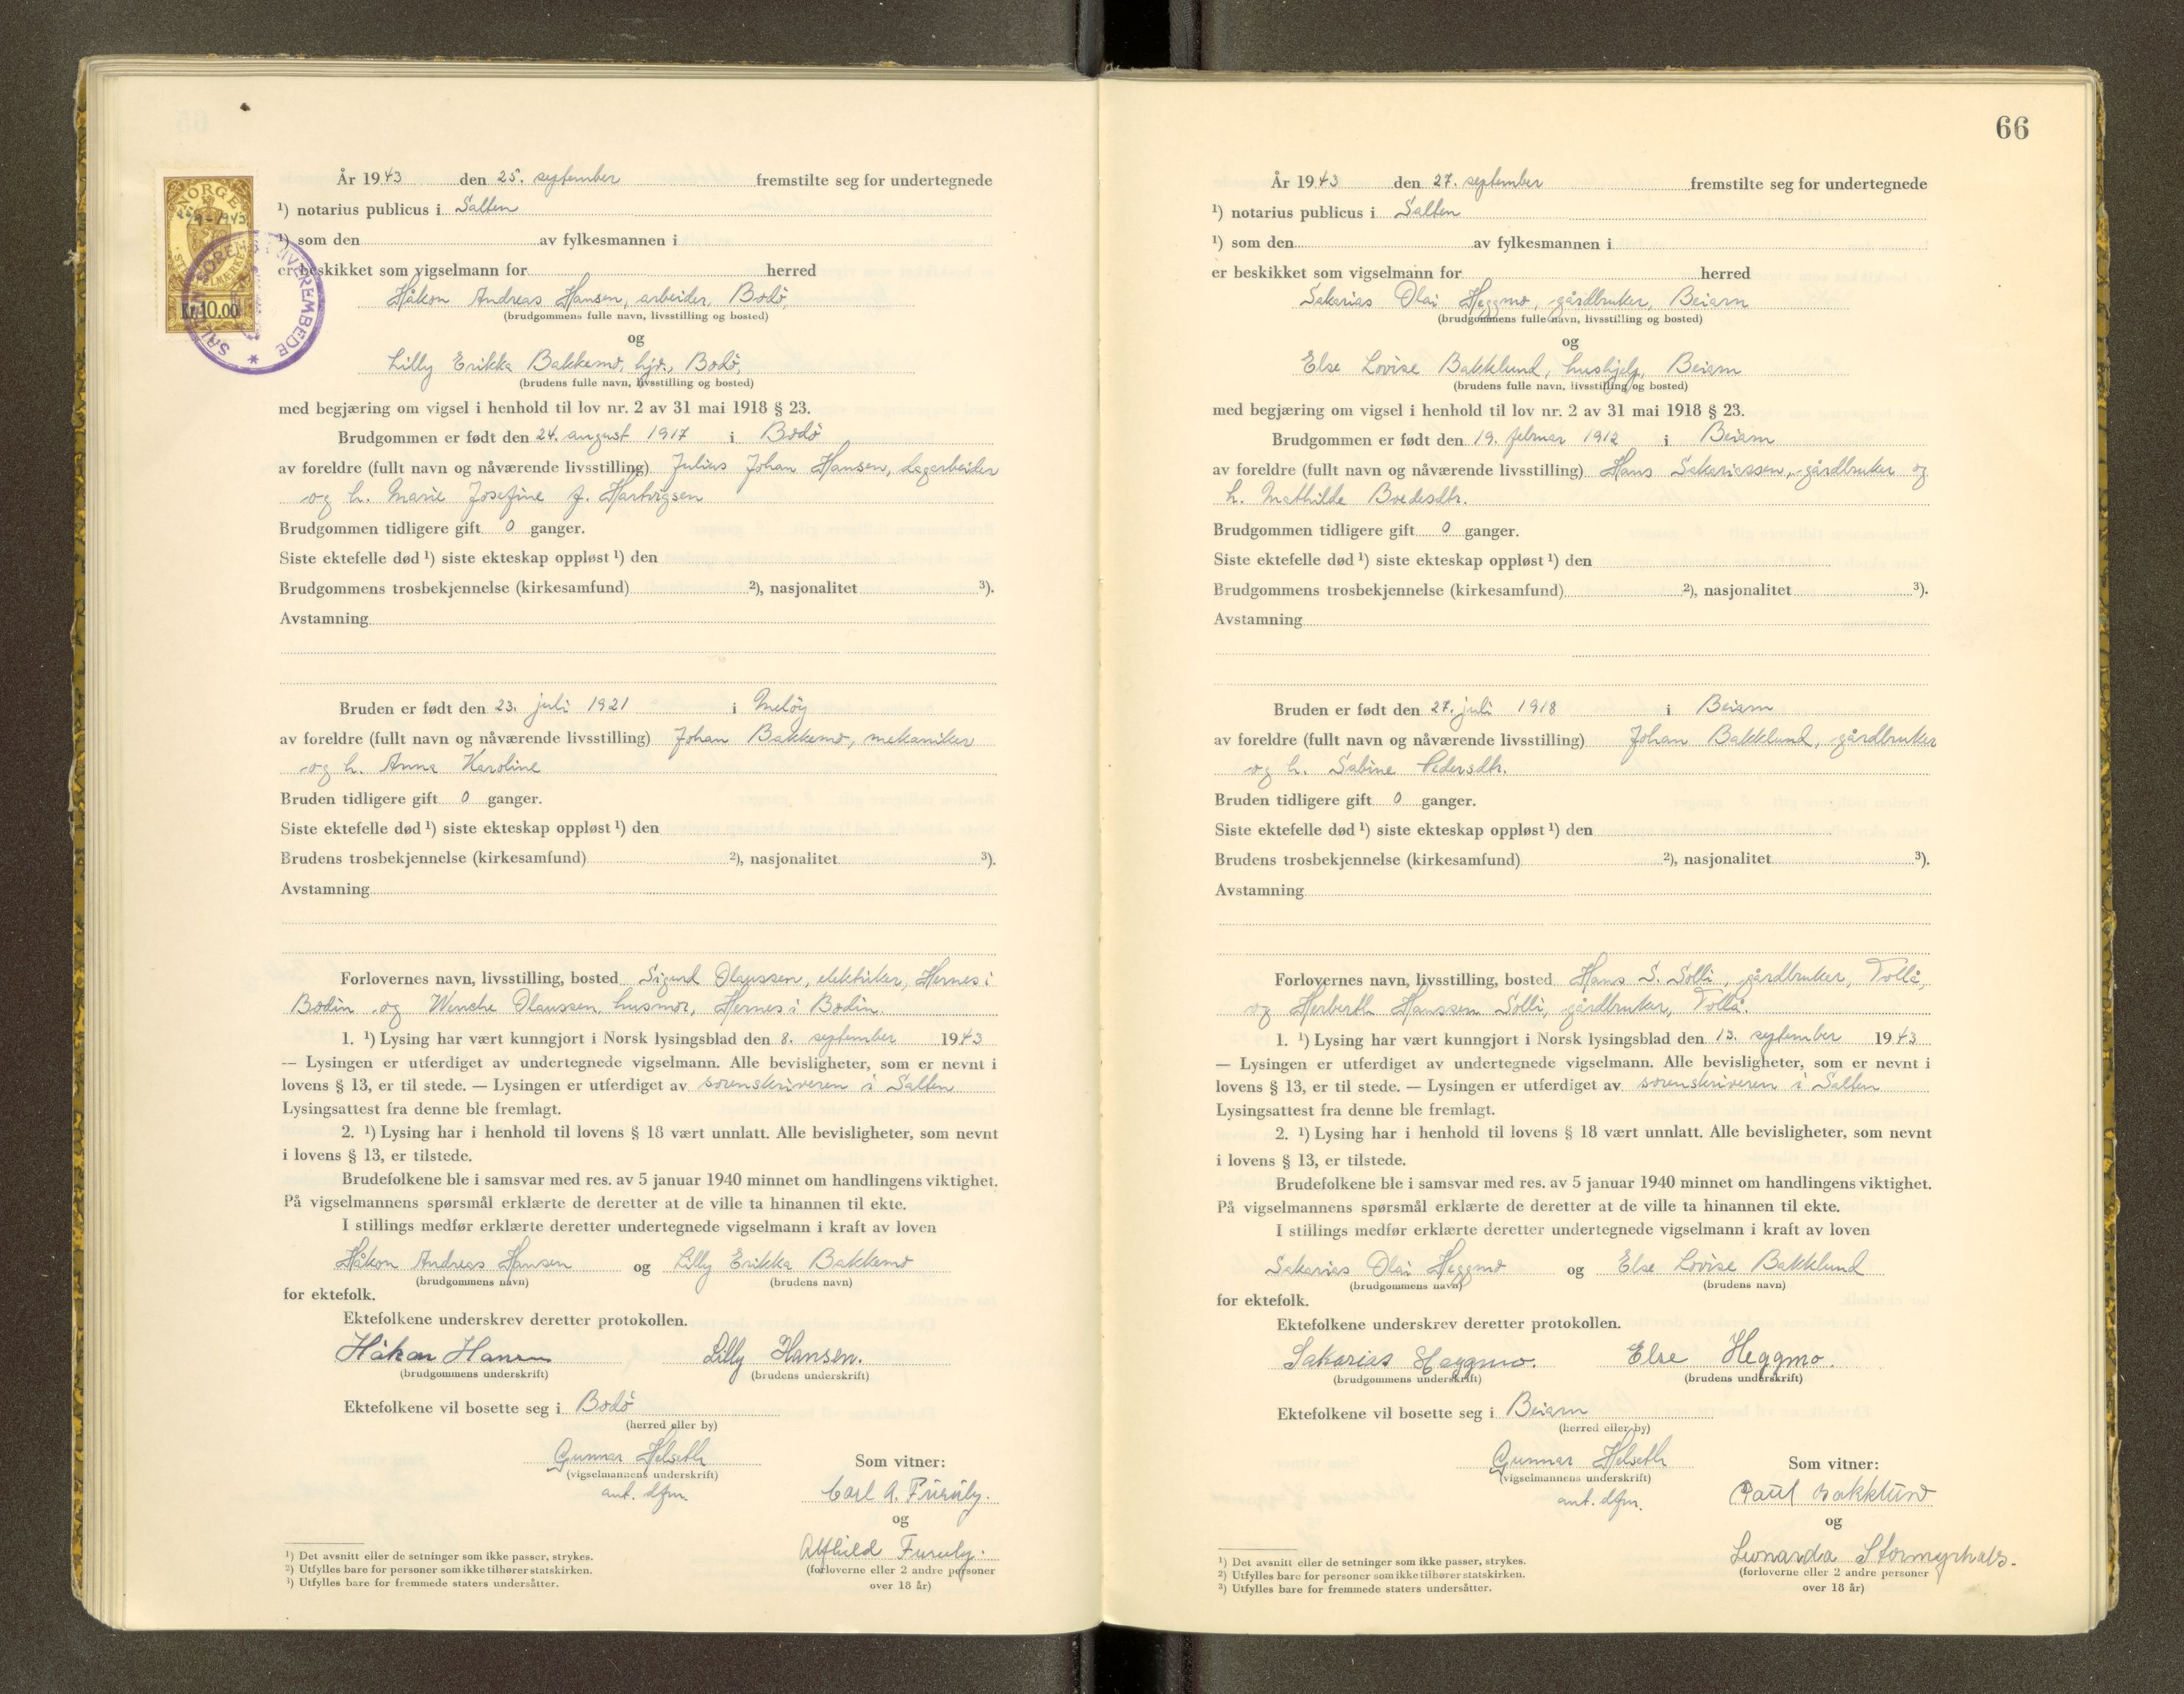 NORGE
25/9-1943
STEMPELMERKE
Kr. 10.00
SALTEN SORENSKRIVEREMBEDE
År 1943 den 25. september fremstilte seg for undertegnede
¹) notarius publicus i Salten
¹) som den av fylkesmannen i
er beskikket som vigselmann for herred
Håkon Andreas Hansen, arbeider, Bodö,
(brudgommens fulle navn, livsstilling og bosted)
og
Lilly Erikka Bakkemo, hjv., Bodö,
(brudens fulle navn, livsstilling og bosted)
med begjæring om vigsel i henhold til lov nr. 2 av 31 mai 1918 § 23.
Brudgommen er født den 24. august 1917 i Bodö
av foreldre (fullt navn og nåværende livsstilling) Julius Johan Hansen, dagarbeider
og h. Marie Josefine f. Hartvigsen
Brudgommen tidligere gift 0 ganger.
Siste ektefelle død ¹) siste ekteskap oppløst ¹) den
Brudgommens trosbekjennelse (kirkesamfund) ²), nasjonalitet ³).
Avstamning
Bruden er født den 23. juli 1921 i Melöy
av foreldre (fullt navn og nåværende livsstilling) Johan Bakkemo, mekaniker
og h. Anna Karoline
Bruden tidligere gift 0 ganger.
Siste ektefelle død ¹) siste ekteskap oppløst ¹) den
Brudens trosbekjennelse (kirkesamfund) ²), nasjonalitet ³).
Avstamning
Forlovernes navn, livsstilling, bosted Sigurd Olaussen, elektriker, Hernes i
Bodin og Wenche Olaussen, husmor, Hernes i Bodin.
1. ¹) Lysing har vært kunngjort i Norsk lysingsblad den 8. september 1943
— Lysingen er utferdiget av undertegnede vigselmann. Alle bevisligheter, som er nevnt i
lovens § 13, er til stede. — Lysingen er utferdiget av sorenskriveren i Salten
Lysingsattest fra denne ble fremlagt.
2. ¹) Lysing har i henhold til lovens § 18 vært unnlatt. Alle bevisligheter, som nevnt
i lovens § 13, er tilstede.
Brudefolkene ble i samsvar med res. av 5 januar 1940 minnet om handlingens viktighet.
På vigselmannens spørsmål erklærte de deretter at de ville ta hinannen til ekte.
I stillings medfør erklærte deretter undertegnede vigselmann i kraft av loven
Håkon Andreas Hansen og Lilly Erikka Bakkemo
(brudgommens navn) (brudens navn)
for ektefolk.
Ektefolkene underskrev deretter protokollen.
Håkon Hansen Lilly Hansen.
(brudgommens underskrift) (brudens underskrift)
Ektefolkene vil bosette seg i Bodö
(herred eller by)
Gunnar Helseth
(vigselmannens underskrift)
aut. dfm.
Som vitner:
Carl A. Furuly.
og
Alfhild Furuly.
(forloverne eller 2 andre personer
over 18 år)
¹) Det avsnitt eller de setninger som ikke passer, strykes.
²) Utfylles bare for personer som ikke tilhører statskirken.
³) Utfylles bare for fremmede staters undersåtter.
66
År 1943 den 27. september fremstilte seg for undertegnede
¹) notarius publicus i Salten
¹) som den av fylkesmannen i
er beskikket som vigselmann for herred
Sakarias Olai Heggmo, gårdbruker, Beiarn
(brudgommens fulle navn, livsstilling og bosted)
og
Else Lovise Bakklund, hushjelp, Beiarn
(brudens fulle navn, livsstilling og bosted)
med begjæring om vigsel i henhold til lov nr. 2 av 31 mai 1918 § 23.
Brudgommen er født den 19. februar 1912 i Beiarn
av foreldre (fullt navn og nåværende livsstilling) Hans Sakariassen, gårdbruker og
h. Mathilde Boedesdtr.
Brudgommen tidligere gift 0 ganger.
Siste ektefelle død ¹) siste ekteskap oppløst ¹) den
Brudgommens trosbekjennelse (kirkesamfund) ²), nasjonalitet ³).
Avstamning
Bruden er født den 27. juli 1918 i Beiarn
av foreldre (fullt navn og nåværende livsstilling) Johan Bakklund, gårdbruker
og h. Sabine Pedersdtr.
Bruden tidligere gift 0 ganger.
Siste ektefelle død ¹) siste ekteskap oppløst ¹) den
Brudens trosbekjennelse (kirkesamfund) ²), nasjonalitet ³).
Avstamning
Forlovernes navn, livsstilling, bosted Hans S. Solli, gårdbruker, Tollå,
og Herberth Hanssen Solli, gårdbruker, Tollå.
1. ¹) Lysing har vært kunngjort i Norsk lysingsblad den 13. september 1943
— Lysingen er utferdiget av undertegnede vigselmann. Alle bevisligheter, som er nevnt i
lovens § 13, er til stede. — Lysingen er utferdiget av sorenskriveren i Salten
Lysingsattest fra denne ble fremlagt.
2. ¹) Lysing har i henhold til lovens § 18 vært unnlatt. Alle bevisligheter, som nevnt
i lovens § 13, er tilstede.
Brudefolkene ble i samsvar med res. av 5 januar 1940 minnet om handlingens viktighet.
På vigselmannens spørsmål erklærte de deretter at de ville ta hinannen til ekte.
I stillings medfør erklærte deretter undertegnede vigselmann i kraft av loven
Sakarias Olai Heggmo og Else Lovise Bakklund
(brudgommens navn) (brudens navn)
for ektefolk.
Ektefolkene underskrev deretter protokollen.
Sakarias Heggmo. Else Heggmo.
(brudgommens underskrift) (brudens underskrift)
Ektefolkene vil bosette seg i Beiarn
(herred eller by)
Gunnar Helseth
(vigselmannens underskrift)
aut. dfm.
Som vitner:
Paul Bakklund
og
Leonarda Stormyrhals.
(forloverne eller 2 andre personer
over 18 år)
¹) Det avsnitt eller de setninger som ikke passer, strykes.
²) Utfylles bare for personer som ikke tilhører statskirken.
³) Utfylles bare for fremmede staters undersåtter.